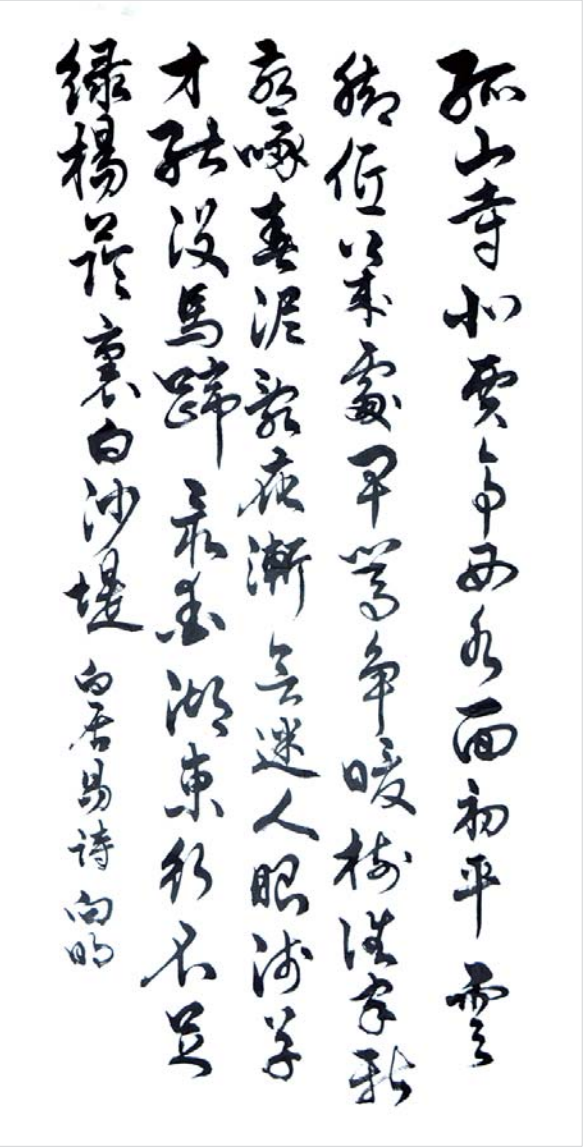 孤山寺北賈亭西水面初平雲
腳低幾處早鶯爭暖樹誰家新
燕啄春泥亂花漸欲迷人眼淺草
才能沒馬蹄最愛湖東行不足
綠楊蔭裏白沙堤 白居易詩 向明